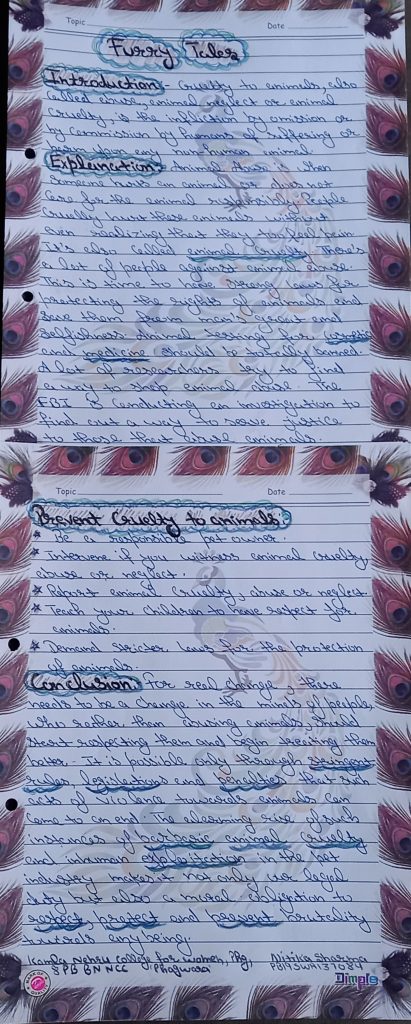 Topic Date
Furry Tales
Introduction: Cruelty to animals, also
called abuse, animal neglect or animal
cruelty is the infliction by omission or
by commission by humans of suffering or
harm upon any animal.
Explaination: Animal abuse is when
someone hurts an animal or does not
care for the animal responsibly. People
cruelly hurt these animals without
even realizing that they too feel pain
It's also called animal There's
a lot of people against animal abuse.
This is time to have strong laws for
protecting the rights of animals and
save them from man's greed and
selfishness. Animal testing for cosmetic
and medicine should be totally banned.
A lot of researchers try to find
a way to stop animal abuse. The
FBI is conducting an investigation to
find out a way to serve justice
to those that abuse animals.
Topic Date
Prevent Cruelty to animals:
* Be a responsible pet owner.
* Intervene if you witness animal cruelty,
abuse or neglect.
* Report animal cruelty, abuse or neglect
* Teach your children to have respect for
animals.
* Demand stricter laws for the protection
of animals.
Conclusion: For real change, there
needs to be a change in the minds of people,
who rather than abusing animals, should
start respecting them and begin treating them
better. It is possible only through stringent
rules, legislations and penalties that such
acts of violence towards animals can
come to an end. The alarming rise of such
instances of barbaric animal cruelty
and inhumane exploitation in the pet
industry makes it not only our legal
duty but also a moral obligation to
respect, protect and prevent brutality
towards any being.
Kamla Nehru College for Women, Phg, Nitika Sharma
8 PB BN NCC Phagwara PB19SWA137084
Dimple